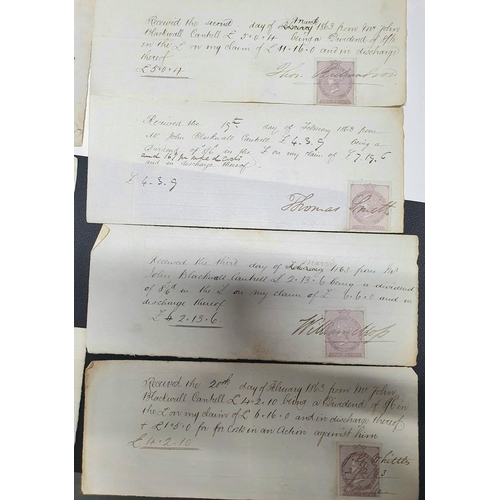 Received the second day of March 1863 from Mr John
Blackwall Cantrell £ 5.0.4 being a Dividend of 8/6
in the £ on my claim of £ 11.16.0 and in discharge
thereof
£ 5.0.4
Thos.
Received the 19th day of February 1863 from
Mr John Blackwall Cantrell £ 4.3.9 being a
Dividend of 8/6 in the £ on my claim of £ 7.19.6
and in discharge thereof
£ 4.3.9
Thomas Smith
Received the third day of March 1863 from Mr
John Blackwall Cantrell £ 2.13.6 being a dividend
of 8/6 in the £ on my claim of £ 6.6.0 and in
discharge thereof
£ 2.13.6
William
Received the 20th day of February 1863 from Mr John
Blackwall Cantrell £ 4.2.10 being a Dividend of 8/6 in
the £ on my claim of £ 6.16.0 and in discharge thereof
+ £1.5.0 for Costs in an Action against him
£ 4.2.10